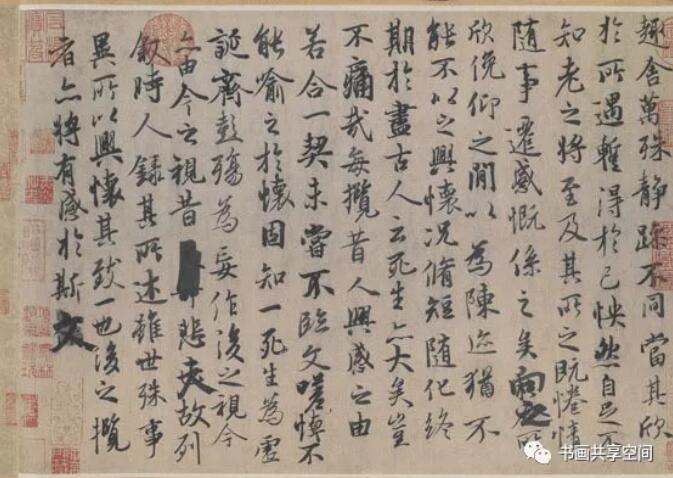 趣舍萬殊静躁不同當其欣
於所遇暫得於己怏然自足不
知老之將至及其所之既惓情
隨事遷感慨係之矣向之所
欣俛仰之閒以為陳迹猶不
能不以之興懷況脩短隨化終
期於盡古人云死生亦大矣豈
不痛哉每攬昔人興感之由
若合一契未嘗不臨文嗟悼不
能喻之於懷固知一死生為虛
誕齊彭殤為妄作後之視今
亦由今之視昔悲夫故列
敘時人錄其所述雖世殊事
異所以興懷其致一也後之攬
者亦將有感於斯文
书画共享空间